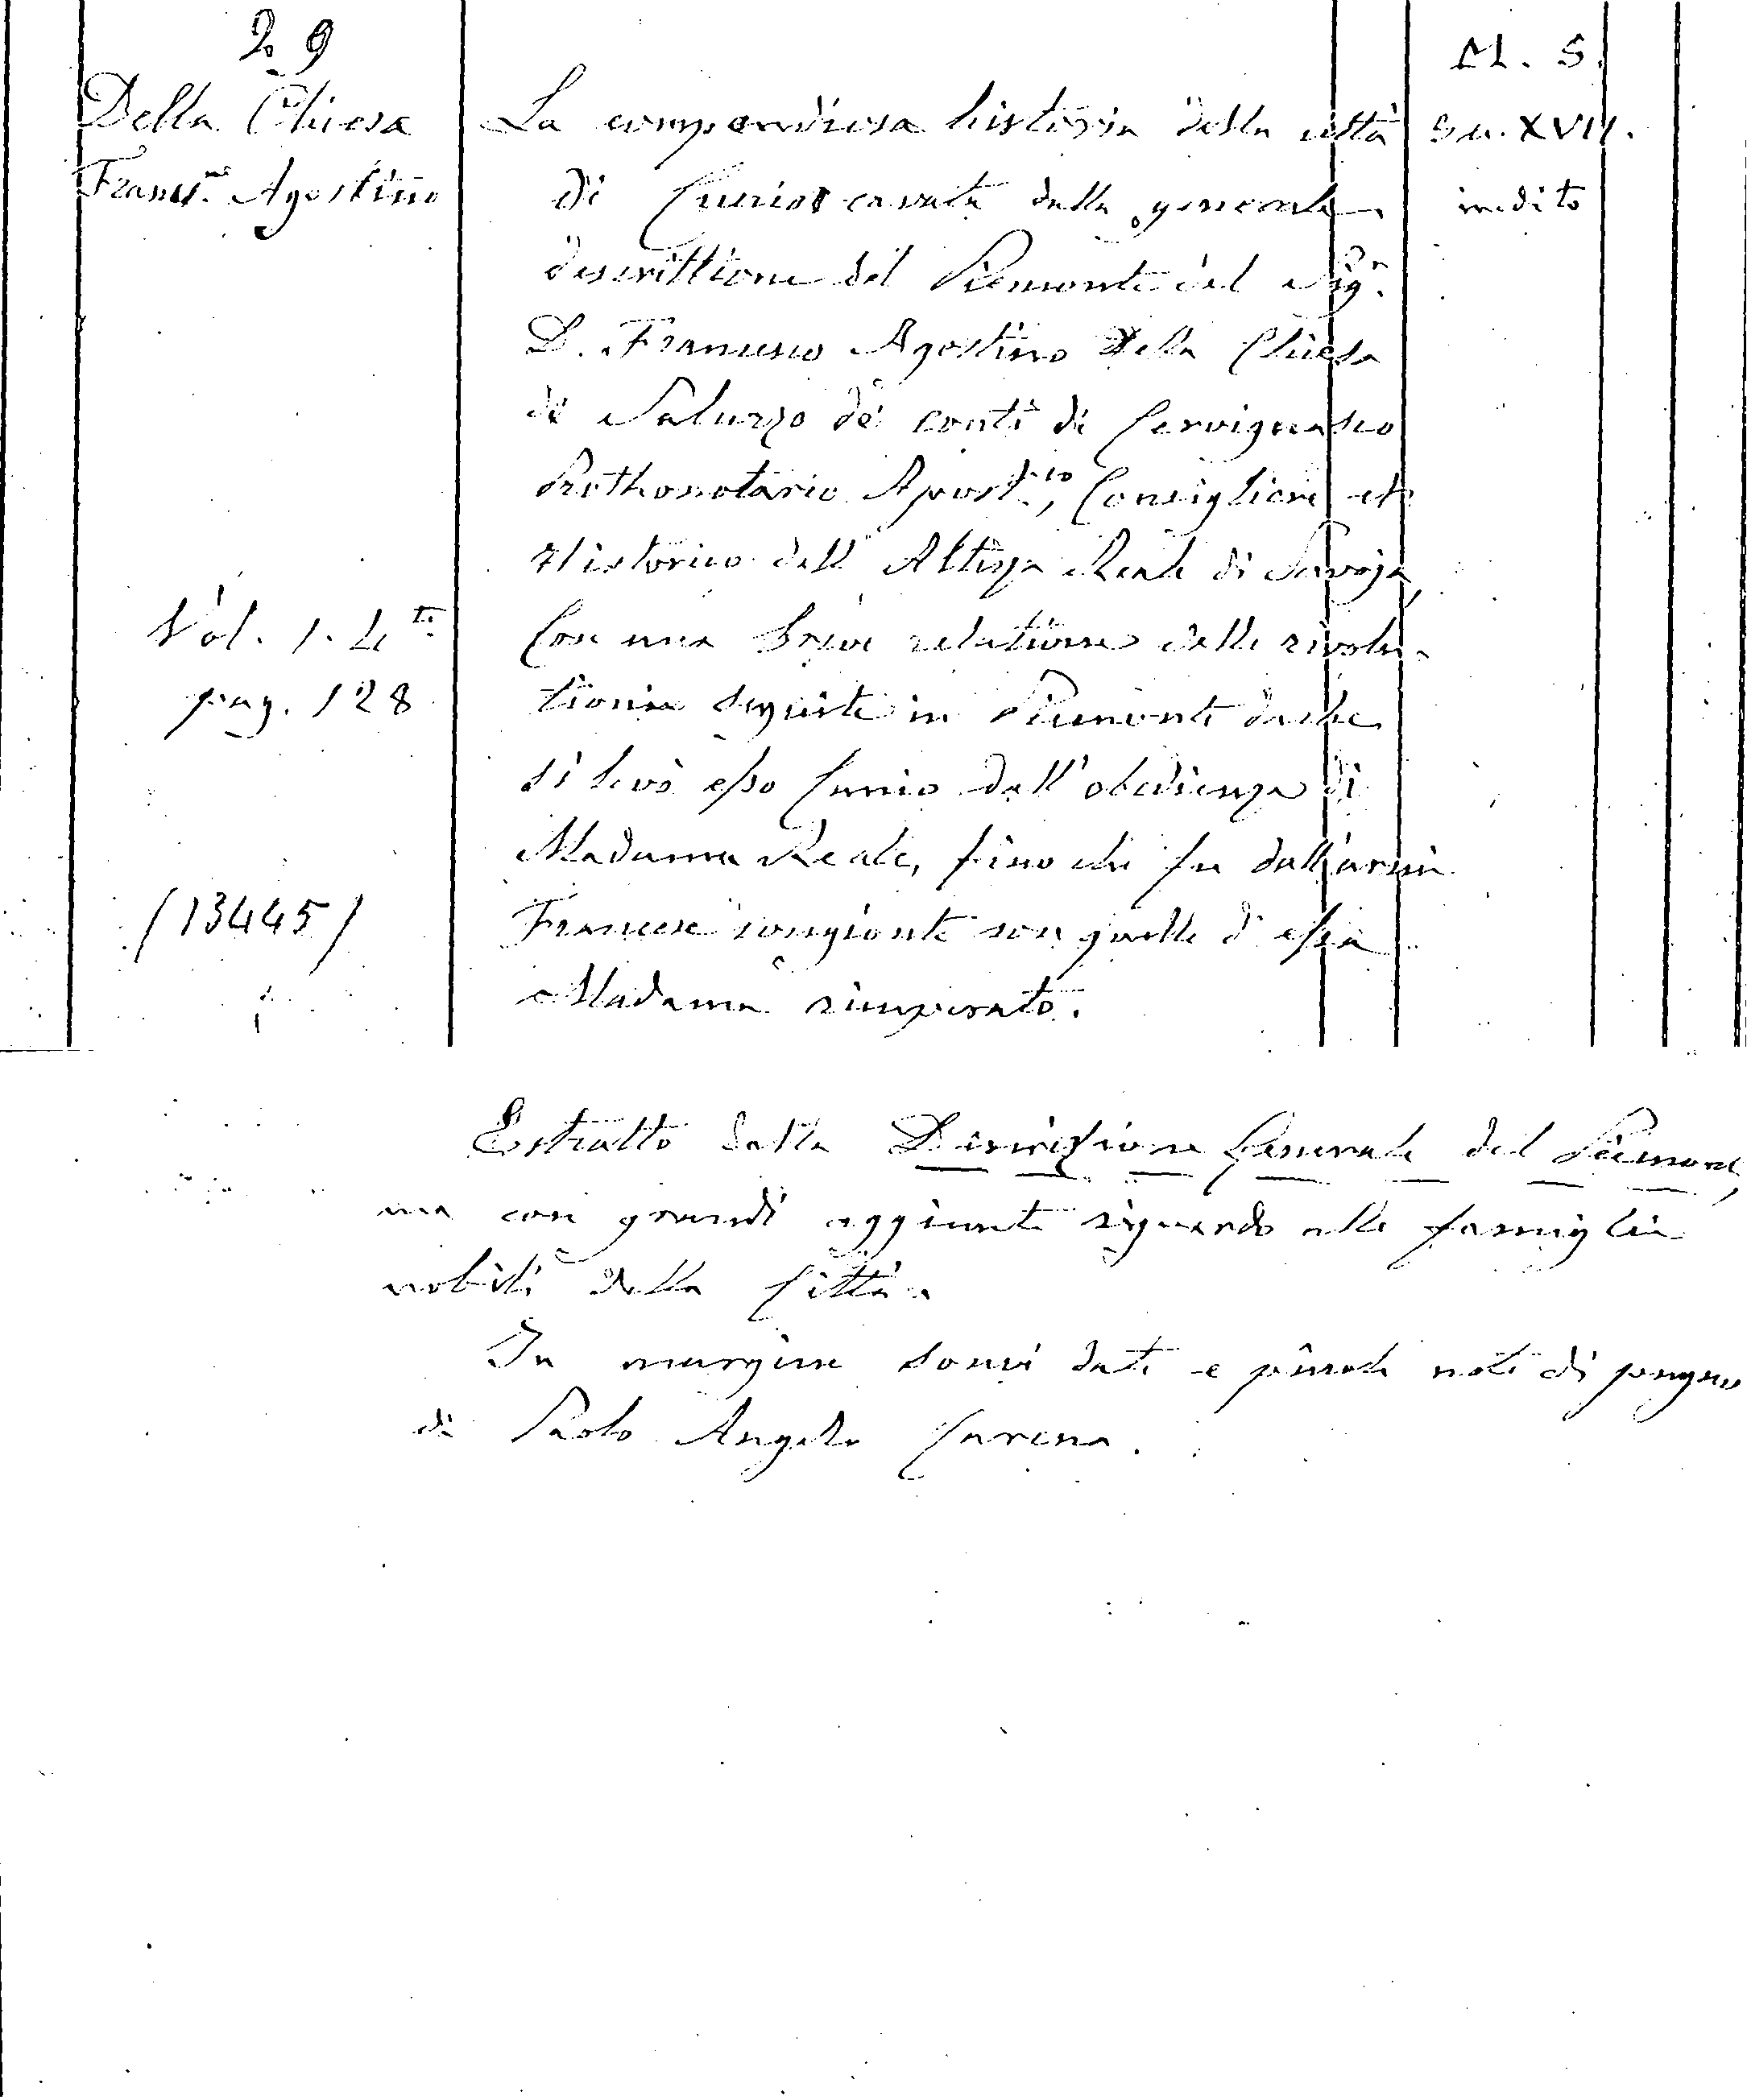 29
Della Chiesa
Franc.º Agostino
Vol. 1. 4.to
pag. 128
(13445)
La compendiosa historia della città
di Cunio cavata dalla generale
descrittione del Piemonte del Sig.r
D. Francesco Agostino Della Chiesa
di Saluzzo de conti di Cervignasco
Prothonotario Apost.co, Consigliere et
Historico dell' Altezza Reale di Savoja,
Con una breve relatione delle rivolu-
tioni seguite in Piemonte da che
si levò esso Cunio dall'obedienza di
Madama Reale, fino che fu dall'armi
Francesi congionte con quelle d'essa
Madama ricuperato.
M. S.
Sec. XVII.
inedito
Estratto dalla Descrizione Generale del Piemonte,
ma con grandi aggiunte riguardo alle famiglie
nobili della Città.
In margine sonvi date e piccole note di pugno
di Paolo Angelo Carena.